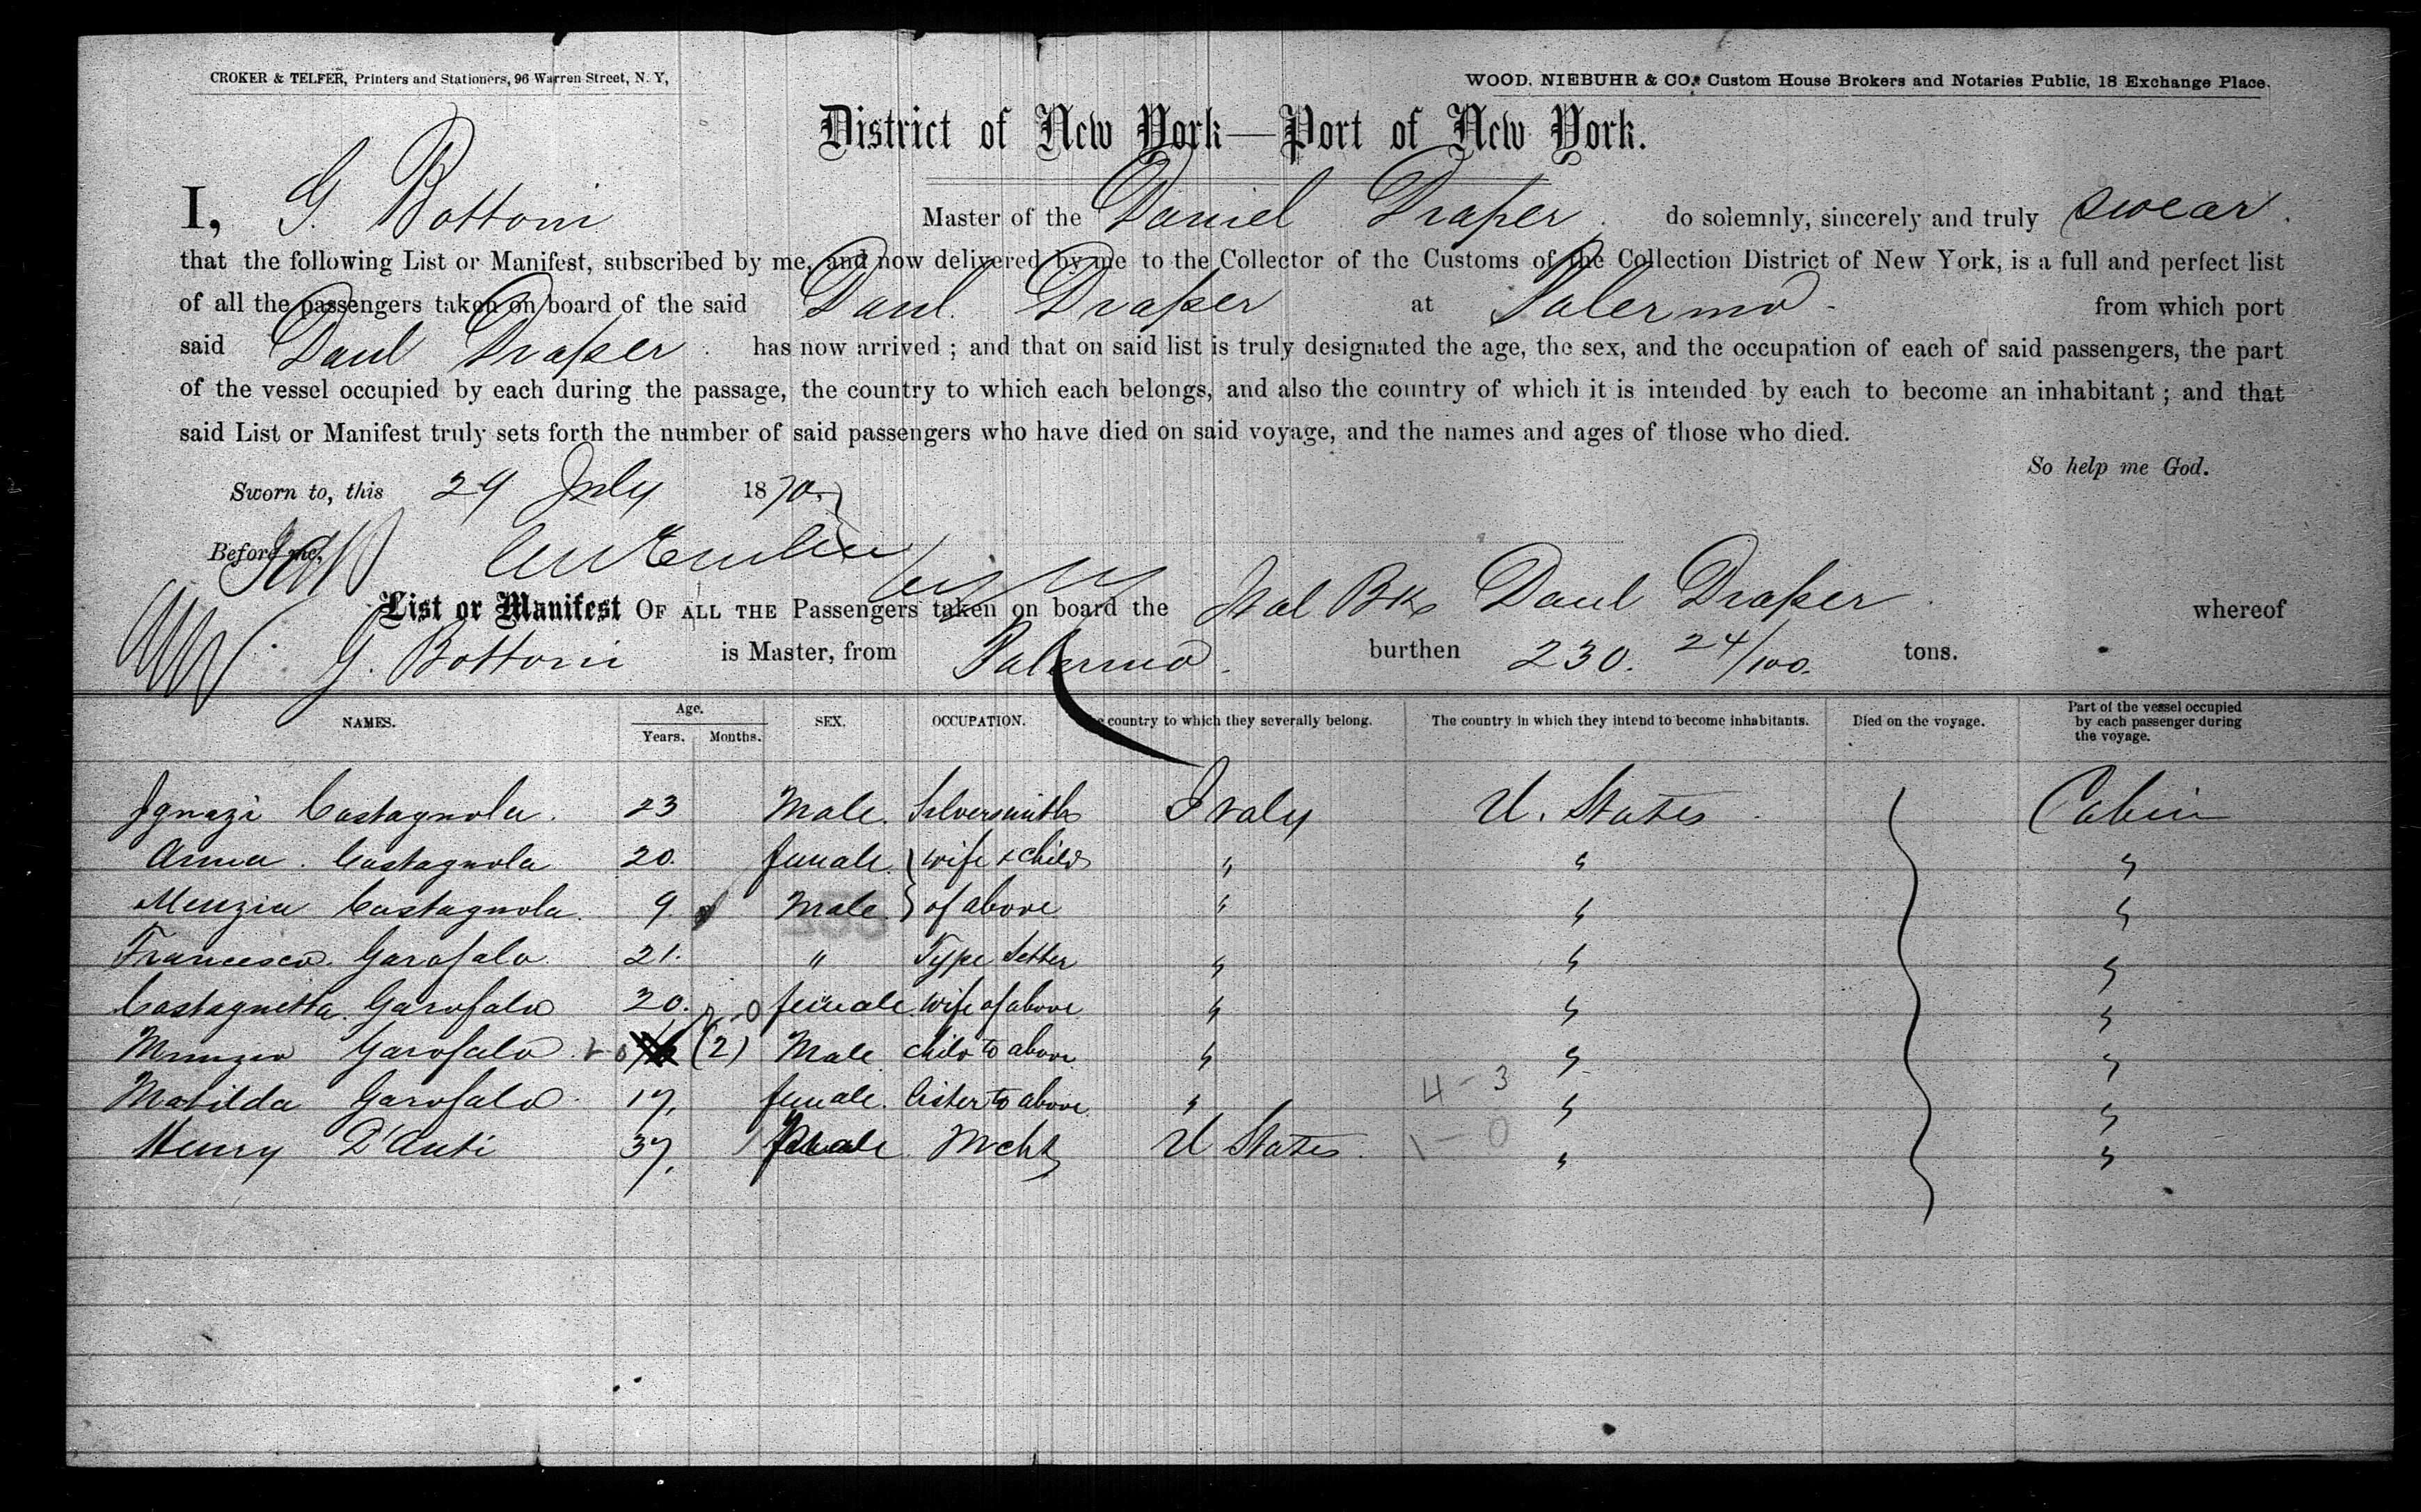 CROKER & TELFER, Printers and Stationers, 96 Warren Street, N. Y,
WOOD, NIEBUHR & CO., Custom House Brokers and Notaries Public, 18 Exchange Place.
District of New York—Port of New York.
I, G. Bottoni Master of the Daniel Draper do solemnly, sincerely and truly swear.
that the following List or Manifest, subscribed by me, and now delivered by me to the Collector of the Customs of the Collection District of New York, is a full and perfect list
of all the passengers taken on board of the said Danl. Draper at Palermo from which port
said Danl Draper has now arrived ; and that on said list is truly designated the age, the sex, and the occupation of each of said passengers, the part
of the vessel occupied by each during the passage, the country to which each belongs, and also the country of which it is intended by each to become an inhabitant ; and that
said List or Manifest truly sets forth the number of said passengers who have died on said voyage, and the names and ages of those who died.
So help me God.
Sworn to, this 29 July 1870.
Before me,
List or Manifest OF ALL THE Passengers taken on board the Ital Bk Danl Draper whereof
G. Bottoni is Master, from Palermo. burthen 230. 24/100. tons.
NAMES. Age. Years. Months. SEX. OCCUPATION. country to which they severally belong. The country in which they intend to become inhabitants. Died on the voyage. Part of the vessel occupied by each passenger during the voyage.
Ignazi Castagnola. 23 Male. Silversmith Italy U. States Cabin
Anna. Castagnola 20. female. wife & child " " "
Castagnola. 9. Male of above " " "
Francesco. Garofalo. 21. " Type Setter " " "
Castagnetta. Garofalo 20. female. wife of above " " "
Garofalo (2) Male child to above " " "
Matilda Garofalo. 17. female. Sister to above. " 4-3 " "
Henry D'Anti 37. Male Mcht U States. 1-0 " "